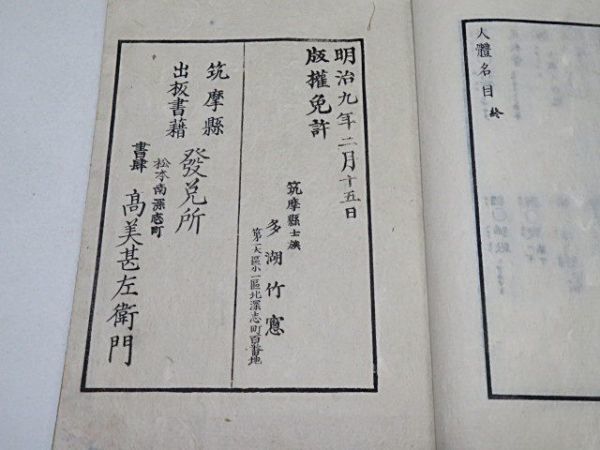 人體名目 終
明治九年二月十五日
版權免許
筑摩縣士族
多湖竹窓
第一大區小一區北深志町百番地
筑摩縣
出板書藉
發兌所
松本南深志町
書肆
高美甚左衛門